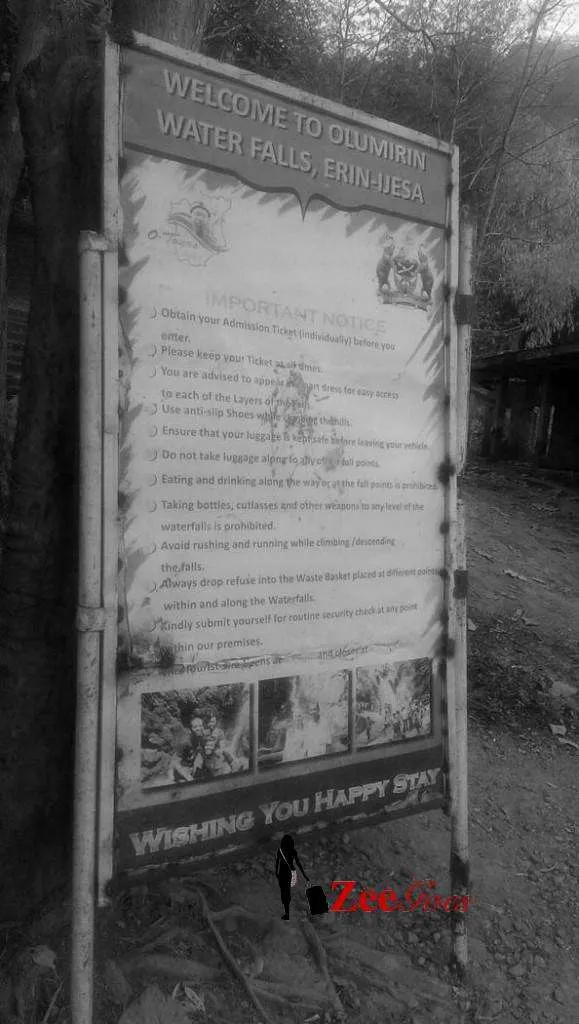 WELCOME TO OLUMIRIN
WATER FALLS, ERIN-IJESA
IMPORTANT NOTICE
Obtain your Admission Ticket (individually) before you
enter.
Please keep your Ticket at all times.
You are advised to appear smart dress for easy access
to each of the Layers of the
Use anti-slip Shoes while climbing the hills.
Ensure that your luggage is kept safe before leaving your vehicle.
Do not take luggage along to any of the fall points.
Eating and drinking along the way or at the fall points is prohibited.
Taking bottles, cutlasses and other weapons to any level of the
waterfalls is prohibited.
Avoid rushing and running while climbing /descending
the falls.
Always drop refuse into the Waste Basket placed at different points
within and along the Waterfalls.
Kindly submit yourself for routine security check at any point
within our premises.
opens at and closes at
WISHING YOU HAPPY STAY
ZeeGoes